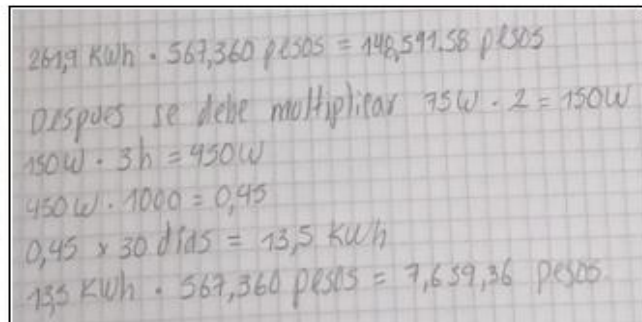 261,9 KWh . 567,360 pesos = 148,591.58 pesos
Despues se debe multiplicar 75W . 2 = 150W
150W . 3h = 450W
450W . 1000 = 0,45
0,45 x 30 dias = 13,5 KWh
13,5 KWh . 567,360 pesos = 7,659,36 pesos.